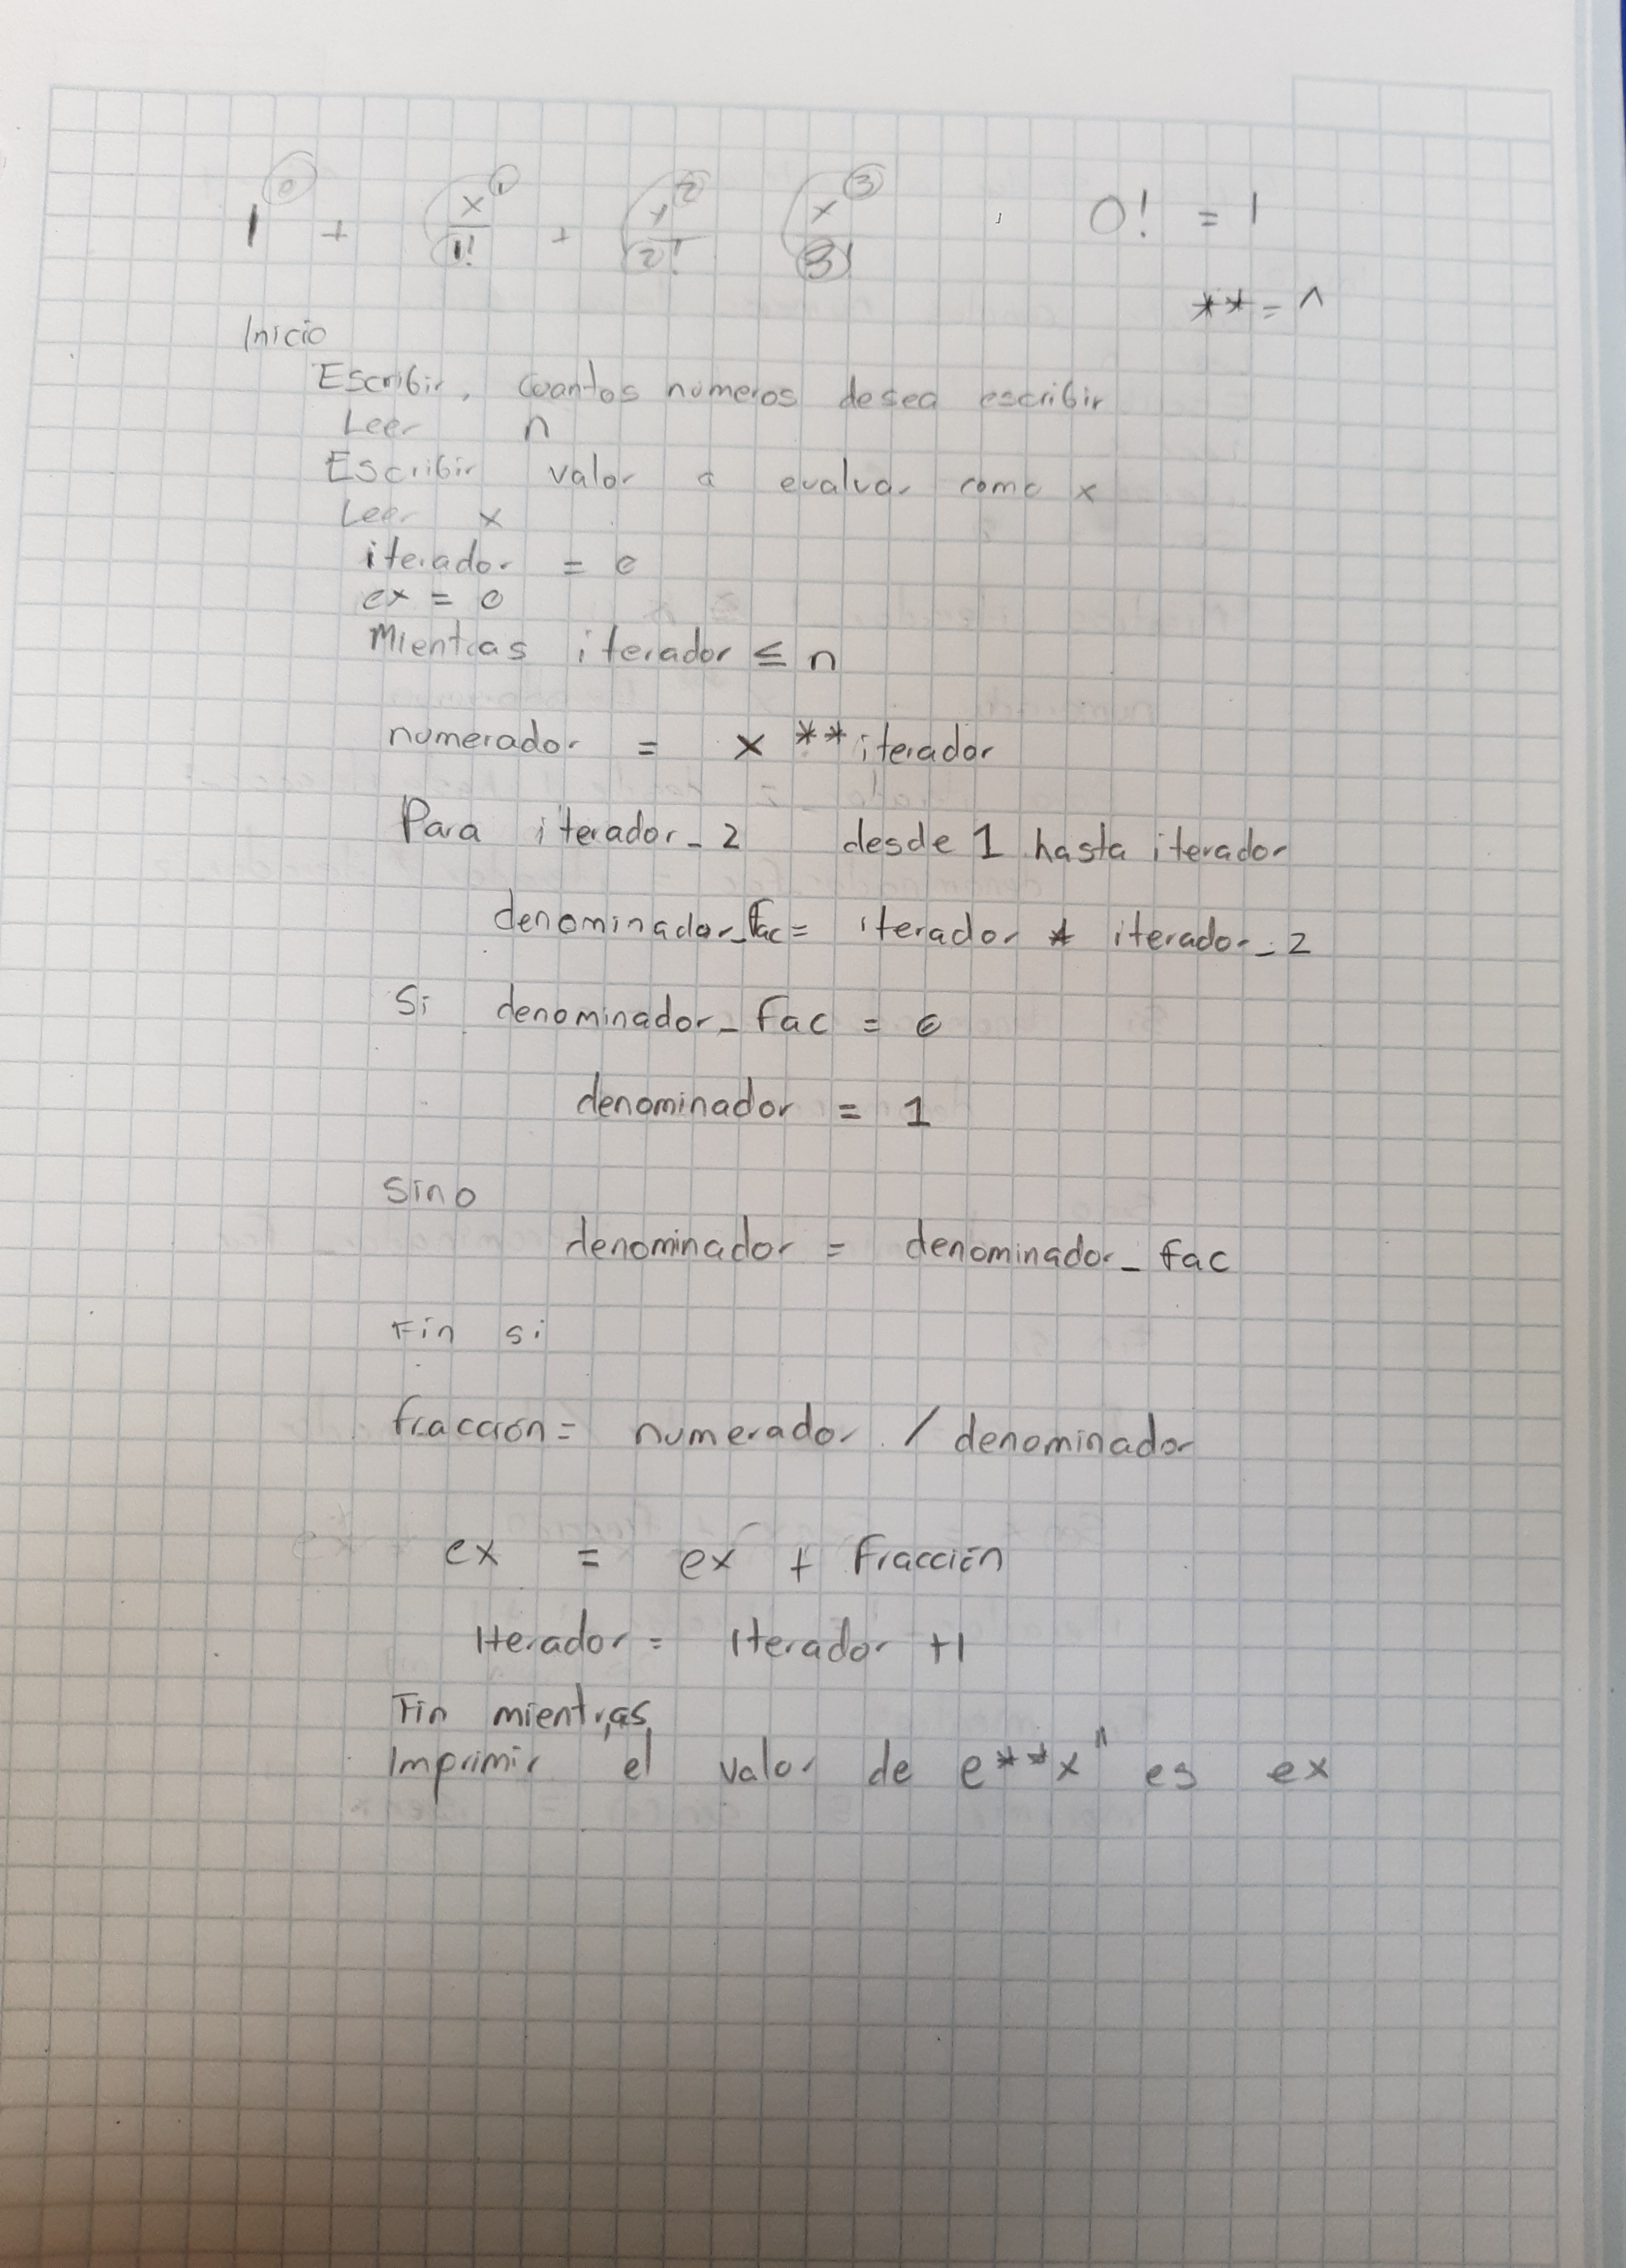 1⁰ + x¹/1! + x²/2! x³/3! , 0! = 1
** = ^
Inicio
Escribir, cuantos números desea escribir
Leer n
Escribir valor a evaluar como x
Leer x
iterador = 0
ex = 0
Mientras iterador ≤ n
numerador = x ** iterador
Para iterador_2 desde 1 hasta iterador
denominador_fac = iterador * iterador_2
Si denominador_fac = 0
denominador = 1
Sino
denominador = denominador_fac
Fin si
fracción = numerador / denominador
ex = ex + fracción
Iterador = Iterador +1
Fin mientras
Imprimir "el valor de e**x" es ex